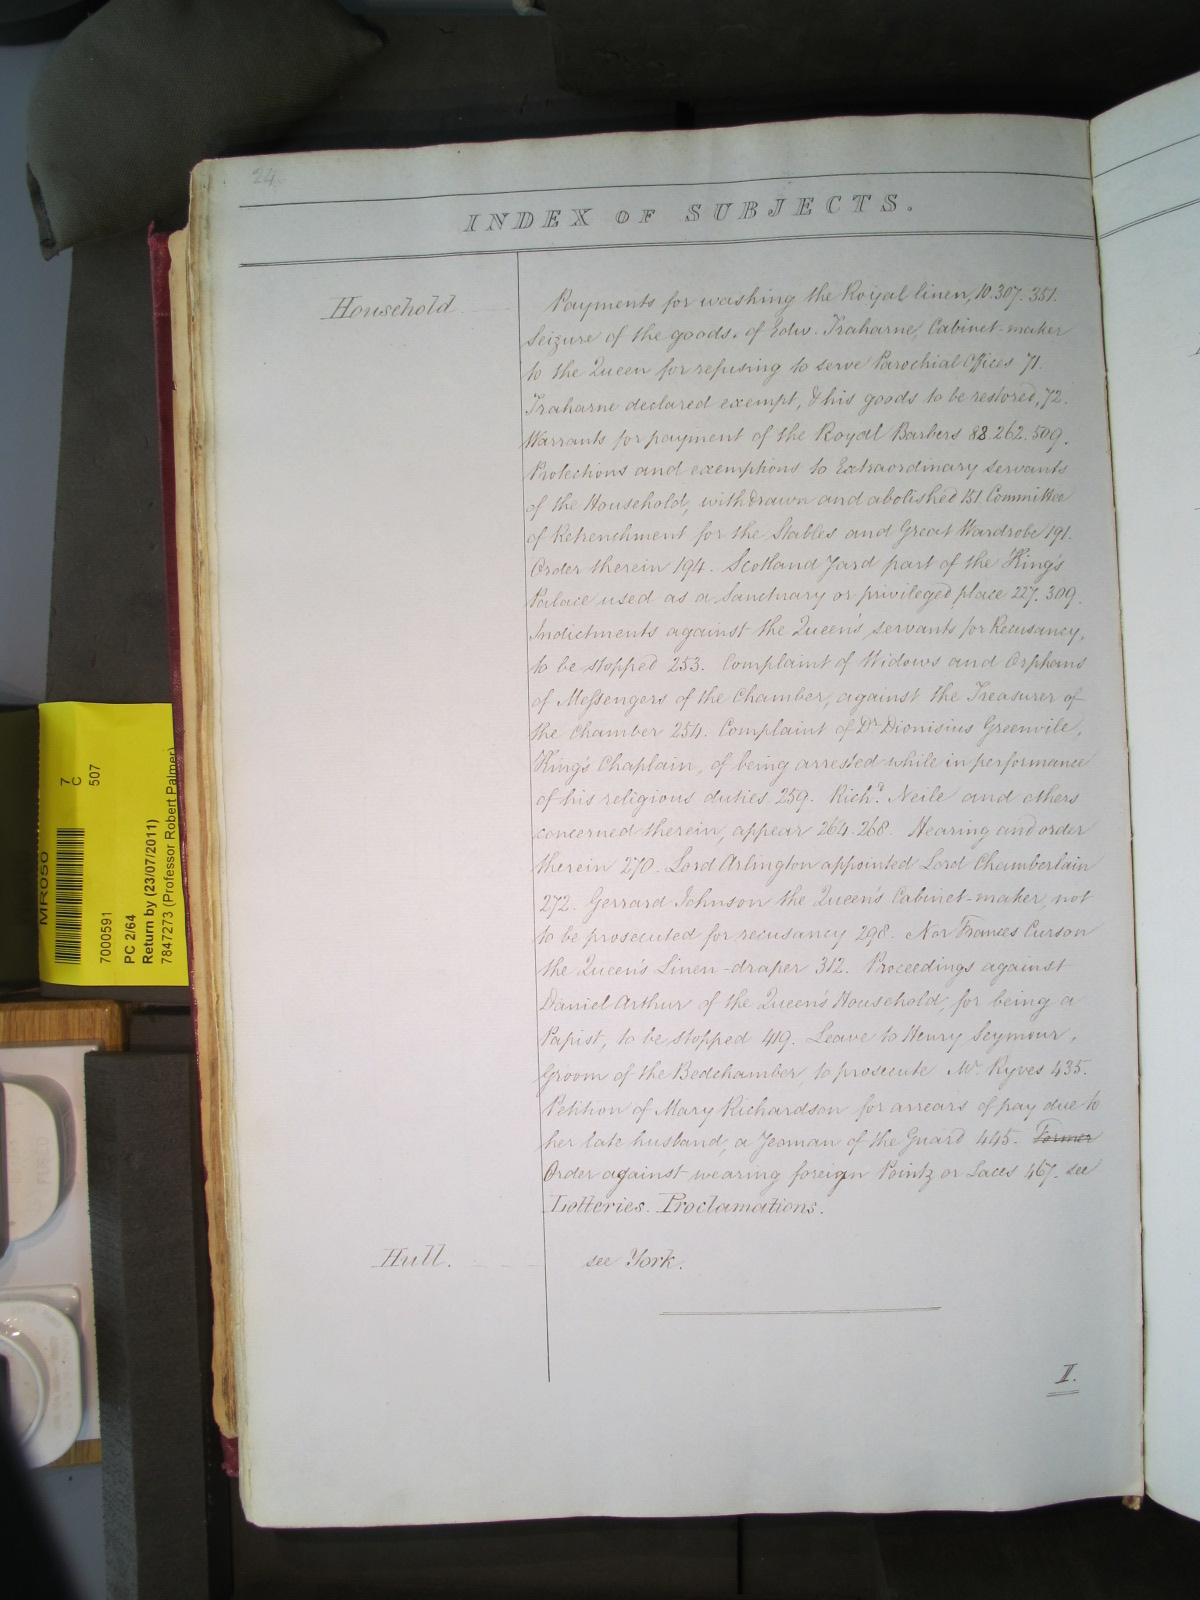 24.
INDEX OF SUBJECTS.
Household
Payments for washing the Royal linen, 10. 307. 351.
Seizure of the goods of Edw. Traharne, Cabinet-maker
to the Queen for refusing to serve Parochial Offices 71.
Traharne declared exempt, & his goods to be restored, 72.
Warrants for payment of the Royal Barbers 88. 262. 509.
Protections and exemptions to Extraordinary servants
of the Household, withdrawn and abolished 151. Committee
of Retrenchment for the Stables and Great Wardrobe 191.
Order therein 194. Scotland Yard part of the King's
Palace used as a Sanctuary or privileged place 227. 309.
Indictments against the Queen's servants for Recusancy,
to be stopped 253. Complaint of Widows and Orphans
of Messengers of the Chamber, against the Treasurer of
the Chamber 254. Complaint of Dr Dionisius Greenvile,
King's Chaplain, of being arrested while in performance
of his religious duties 259. Richd. Neile and others
concerned therein, appear 264. 268. Hearing and order
therein 270. Lord Arlington appointed Lord Chamberlain
272. Gerrard Johnson the Queen's Cabinet-maker, not
to be prosecuted for recusancy 298. Nor Frances Curson
the Queen's Linen-draper 312. Proceedings against
Daniel Arthur of the Queen's Household, for being a
Papist, to be stopped 419. Leave to Henry Seymour,
Groom of the Bedchamber, to prosecute Mr. Ryves 435.
Petition of Mary Richardson for arrears of pay due to
her late husband, a Yeoman of the Guard 445. Former
Order against wearing foreign Pointz or Laces 467. see
Lotteries. Proclamations.
Hull. see York.
I.
MR050
7
C
507
7000591
PC 2/64
Return by (23/07/2011)
7847273 (Professor Robert Palmer)